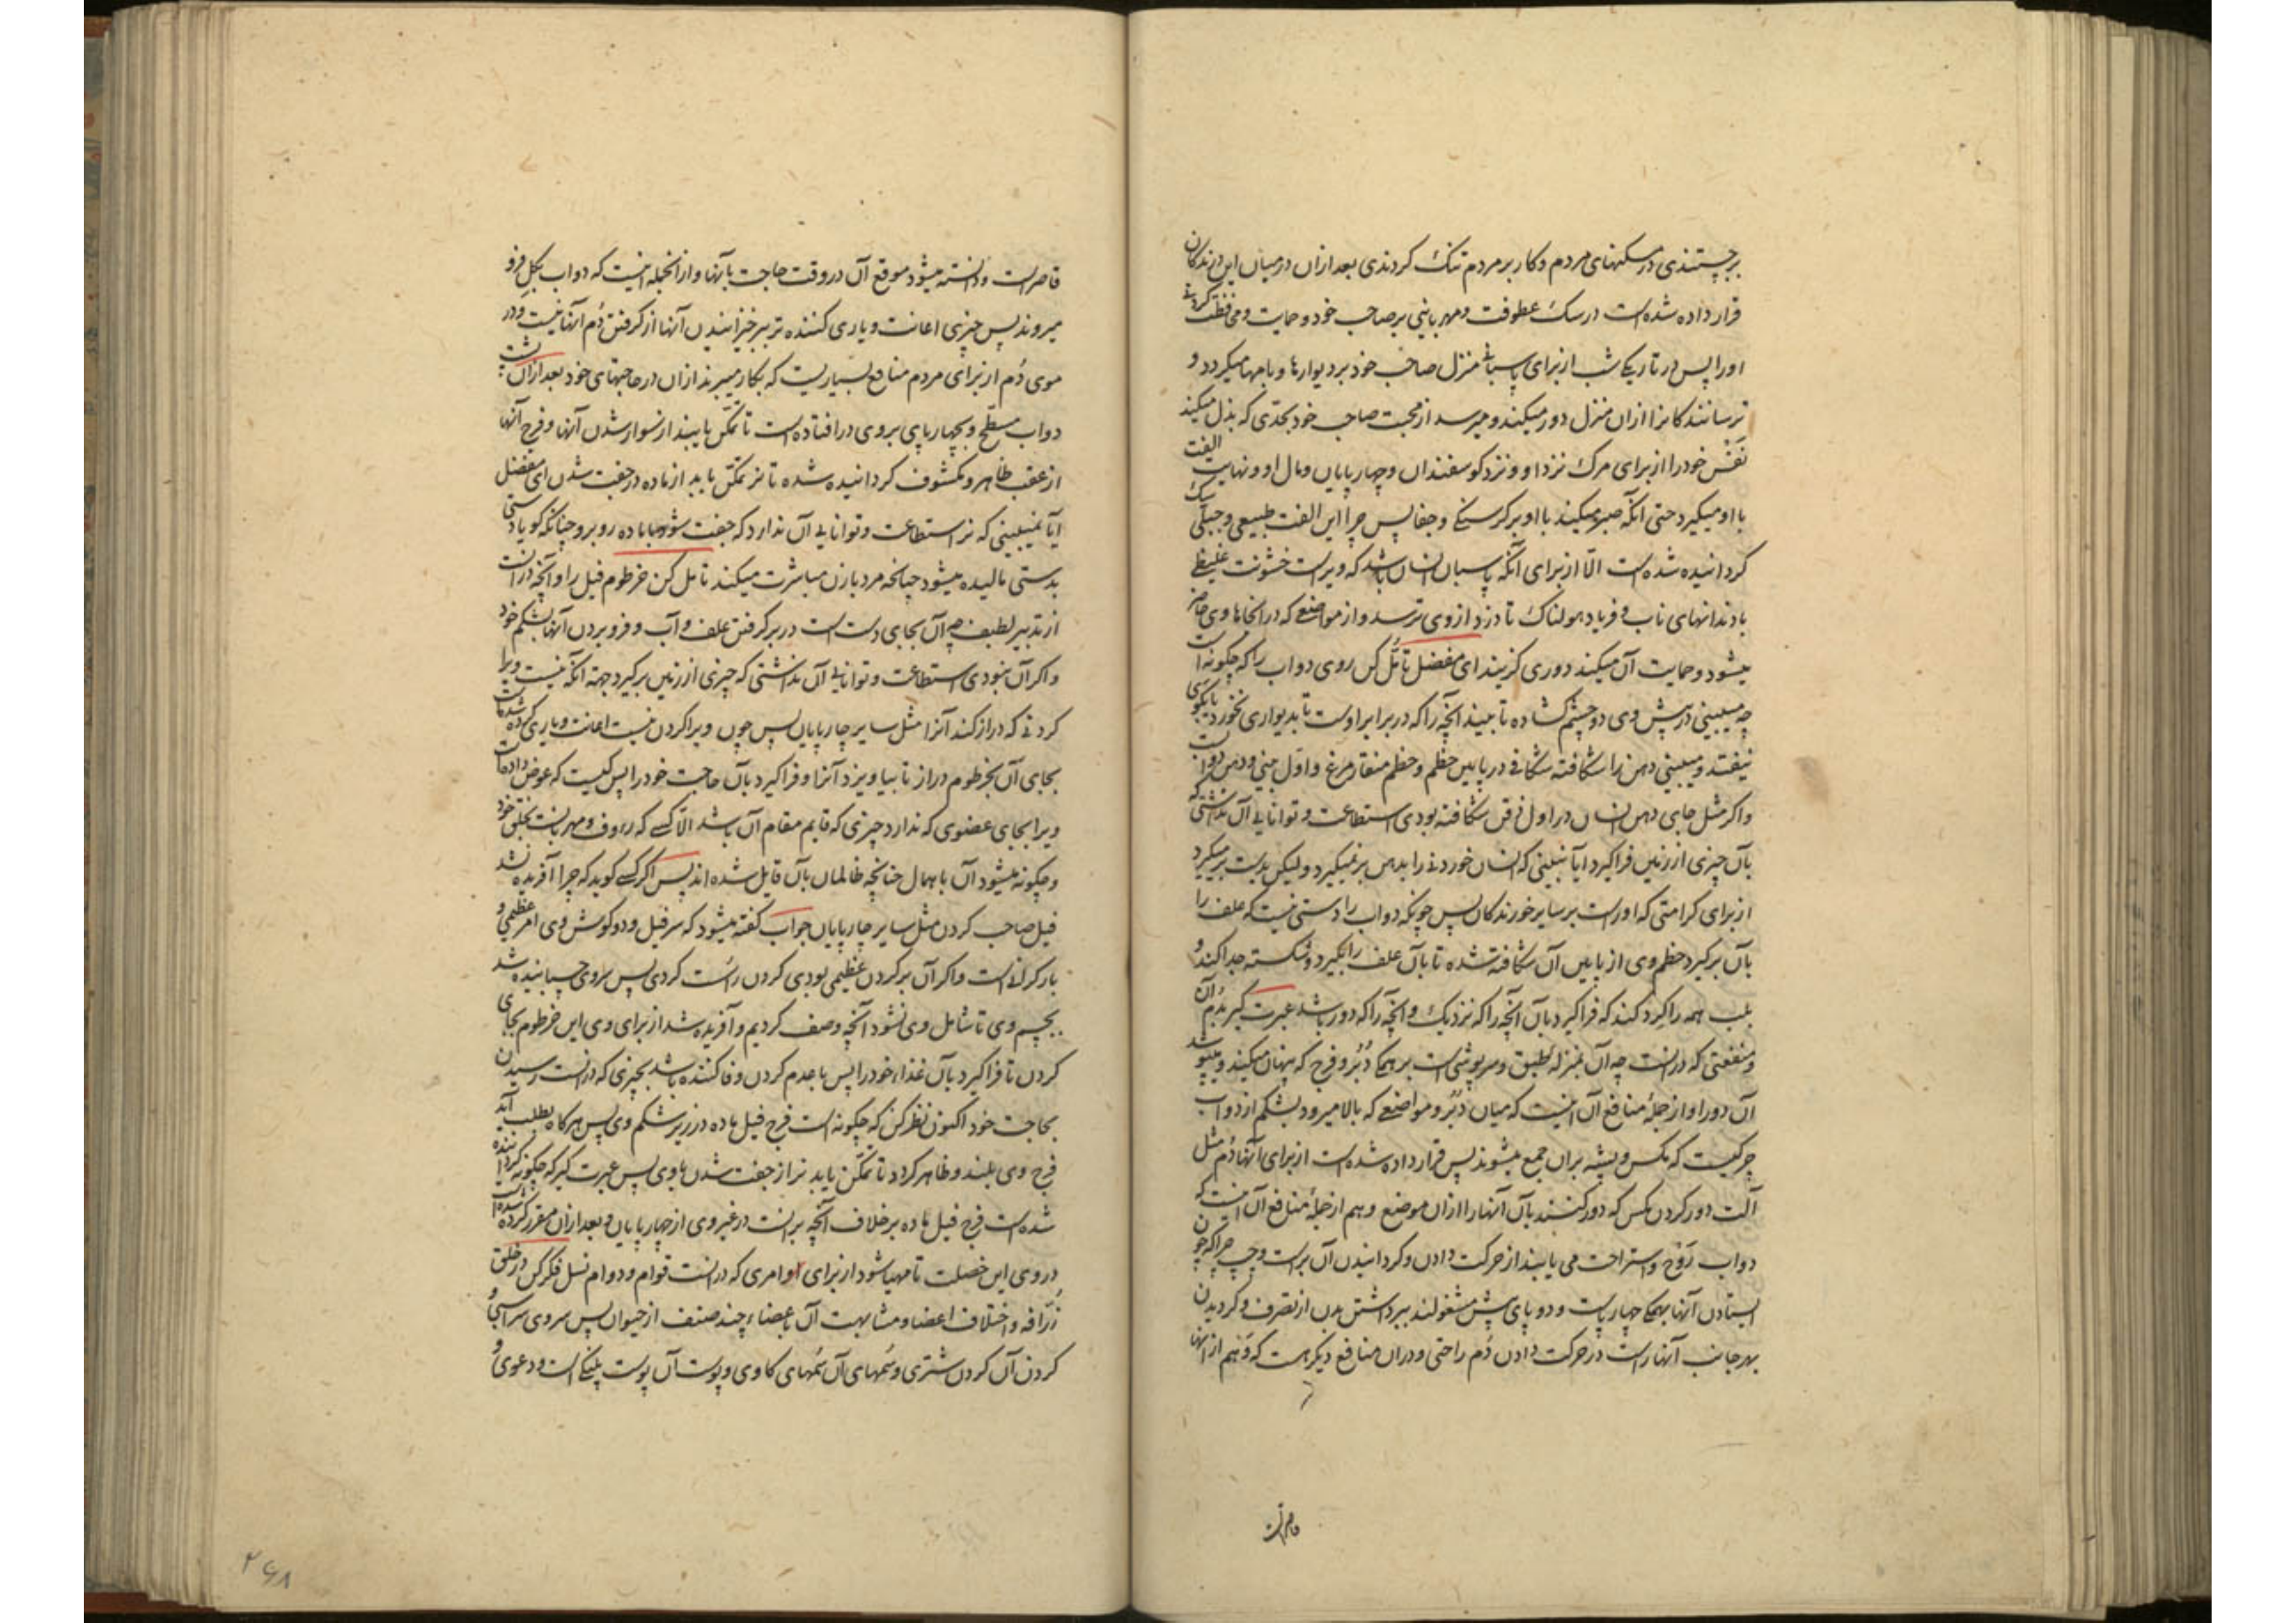 برجستندی در مسکنهای مردم و کار بر مردم تنک کردندی بعد ازان در میان این درندکان
قرار داده شده است در سک عطوفت و مهربانی بر صاحب خود و حمایت و محافظت کردنی
او را پس در تاریکی شب از برای پاسبانی منزل صاحب خود بر دیوارها و بامها میکردد و
ترسانندکانرا ازان منزل دور میکند و میرسد از محبت صاحب خود بحدّی که بذل میکند
نَفْس خود را از برای مرک نزد او و نزد کوسفندان و چهارپایان و مال او و نهایت الفت
با او میکیرد حتی آنکه صبر میکند با او بر کرسنکی و جفا پس چرا این الفت طبیعی و جبلّی سک
کردانیده شده است الّا از برای آنکه پاسبان انسان باشد که ویراست خشونت غلیظ
با دندانهای ناب و فریاد هولناک تا دزد از وی ترسد و از مواضعی که در آنجاها وی حاضر
میشود و حمایت آن میکند دوری کزیند ای مفضل تأمّل کن روی دواب را که چکونه است
چه میبینی در پیش وی دو چشم کشاده تا ببیند آنچه را که در برابر اوست تا بدیواری نخورد یا بکوی
نیفتد و میبینی دهن را شکافته شکافی در پایین خطم و خطم منقار مرغ و اوّل بینی و دهن دوابست
و اکر مثل جای دهن انسان در اول ذقن شکافته بودی استطاعت و توانایی آن نداشتی که
بآن چیزی از زمین فراکیرد آیا نبینی که انسان خوردنی را بدهن برنمیکیرد ولیکن بدست برمیکیرد
از برای کرامتی که او راست بر سایر خورندکان پس چونکه دواب را دستی نیست که علف را
بآن برکیرد خطم وی از پایین آن شکافته شده تا بآن علف را بکیرد و شکسته جدا کند و
بلب همه را کرد کند که فراکیرد بآن آنچه را که نزدیک و آنچه را که دور باشد عبرت کیر بدُم آن
و منفعتی که درانست چه آن بمنزلهٔ طبق و سرپوشی است بر همکی دُبُر و فرج که پنهان میکند و میپوشد
آن دو را و از جملهٔ منافع آن اینست که میان دُبُر و مواضعی که بالا میرود بشکم از دواب
چرکیست که مکس و پشه بران جمع میشوند پس قرار داده شده است از برای آنها دُم مثل
آلت دور کردن مکس که دور کنند بآن آنها را ازان موضع و هم از جملهٔ منافع آن اینست که
دواب رَوْح و استراحت می یابند از حرکت دادن و کردانیدن آن براست و چپ چرا که چون
ایستادن آنها بهمکی چهار پاست و دو پای پیش مشغولند ببرداشتن بدن از تصرف و کردیدن
بهر جانب آنها راست در حرکت دادن دُم راحتی و دران منافع دیکر هست که وَهْم از آنها
قاصر است
قاصر است و دانسته میشود موقع آن در وقت حاجت بآنها و از آنجمله اینست که دواب بکِل فرو
میروند پس چیزی اعانت و یاری کننده تر بر خیزانیدن آنها از کرفتن دُم آنها نیست و در
موی دُم از برای مردم منافع بسیاریست که بکار میبرند ازان در حاجتهای خود بعد ازان پشت
دواب مسطّح و بچهارپایی بر وی در افتاده است تا تمکّن یابند از سوار شدن آنها و فرج آنها
از عقب ظاهر و مکشوف کردانیده شده تا نر تمکّن یابد از ماده در جفت شدن ای مفضل
آیا نمیبینی که نر استطاعت و توانایی آن ندارد که جفت شود با ماده روبرو چنانکه کویا دستی
بدستی مالیده میشود چنانچه مرد با زن مباشرت میکند تامل کن خرطوم فیل را و آنچه درانست
از تدبیر لطیف چه آن بجای دست است در برکرفتن علف و آب و فرو بردن آنها بشکم خود
و اکر آن نبودی استطاعت و توانایی آن نداشتی که چیزی از زمین برکیرد جهة آنکه نیست ویرا
کردنی که دراز کند آنرا مثل سایر چارپایان پس چون ویرا کردن نیست اعانت و یاری کرده شده است
بجای آن بخرطوم دراز تا بیاویزد آنرا و فراکیرد بآن حاجت خود را پس کیست که عوض داده است
ویرا بجای عضوی که ندارد چیزی که قایم مقام آن باشد الّا کسی که رءوف و مهربانست بخلق خود
و چکونه میشود آن باهمال چنانچه ظالمان بآن قایل شده اند پس اکر کسی کوید که چرا آفریده نشد
فیل صاحب کردن مثل سایر چارپایان جواب کفته میشود که سر فیل و دو کوش وی امر عظیمی و
بار کرانست و اکر آن بر کردن عظیمی بودی کردن را سست کردی پس سر وی چسبانیده شد
بجسم وی تا شامل وی نشود آنچه وصف کردیم و آفریده شد از برای وی این خرطوم بجای
کردن تا فراکیرد بآن غذاء خود را پس با عدم کردن وفا کننده باشد بچیزی که درانست رسیدن
بحاجت خود اکنون نظر کن که چکونه است فرج فیل ماده در زیر شکم وی پس هر کاه بطلب آید
فرج وی بلند و ظاهر کردد تا تمکّن یابد نر از جفت شدن با وی پس عبرت کیر که چکونه کردانیده
شده است فرج فیل ماده بر خلاف آنچه برانست در غیر وی از چهارپایان و بعد ازان مقرر کرده شده است
در وی این خصلت تا مهیا شود از برای اوامری که درانست قوام و دوام نسل فکر کن در خلق
زُرّافه و اختلاف اعضا و مشابهت آن باعضاء چند صنف از حیوان پس سر وی سر اسبی و
کردن آن کردن شتری و سُمهای آن سُمهای کاوی و پوست آن پوست پلنکی است و دعوی و
۲۶۸